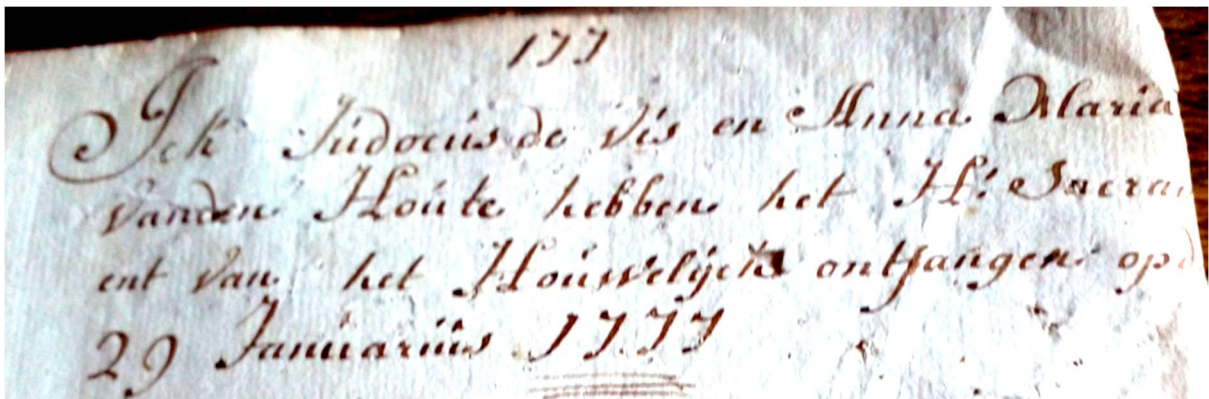 177
Ick Judocus de Vis en Anna Maria
vanden Houte hebben het H: Sacra
ent van het Houwelijck ontfangen op d
29 Januarius 1777